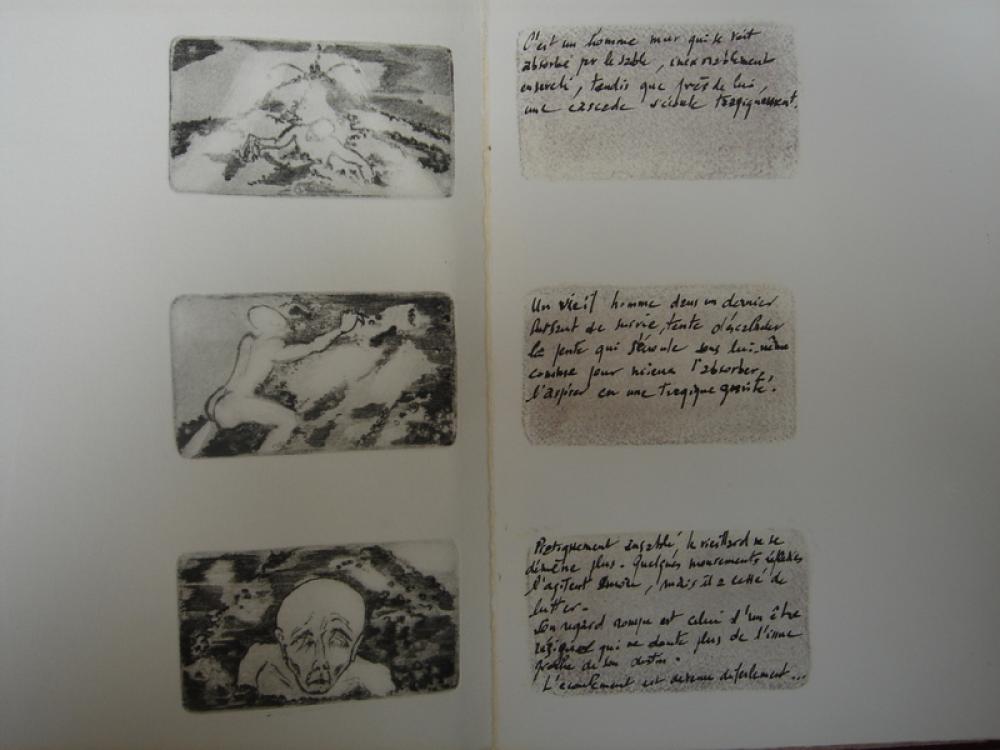 C'est un homme mur qui se voit
absorbé par le sable, inexorablement
enseveli, tandis que près de lui,
une cascade s'écoule tragiquement.
Un vieil homme dans un dernier
sursaut de survie, tente d'escalader
la pente qui s'écoule sous lui-même
comme pour mieux l'absorber,
l'aspirer en une tragique gravité.
Pratiquement ensablé, le vieillard ne se
démène plus. Quelques mouvements réflexes
l'agitent encore, mais il a cessé de
lutter.
Son regard rompu est celui d'un être
résigné qui ne doute plus de l'issue
proche de son destin.
L'écoulement est devenu déferlement...